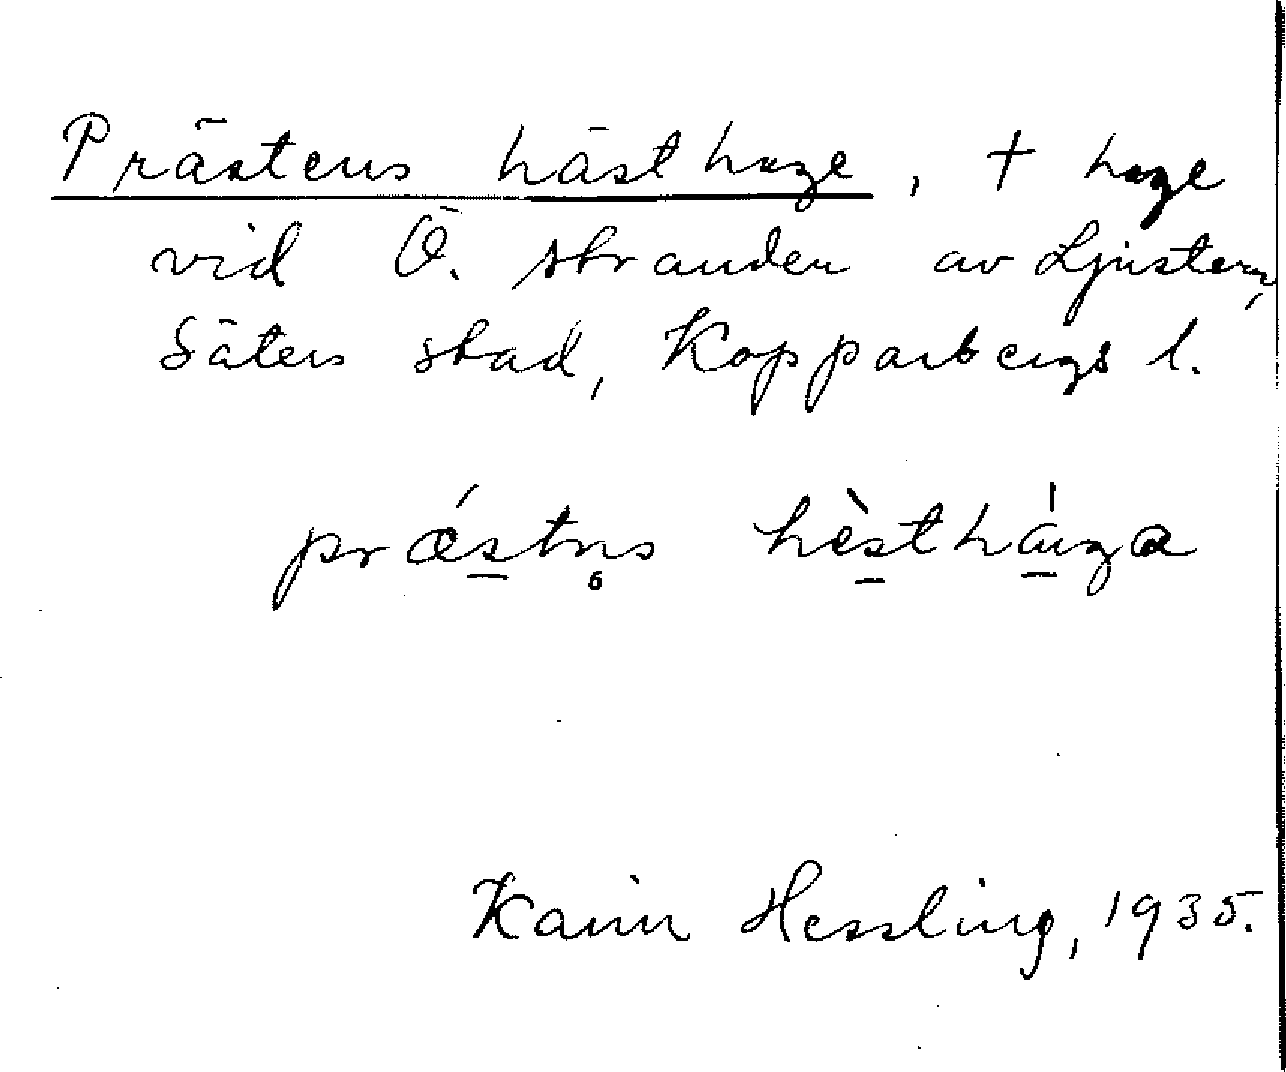 Prästens hästhage, † hage
vid Ö. stranden av Ljustern,
Säters stad, Kopparbergs l.
prǽstn̥s hèsthá̱ga
Karin Hessling, 1935.